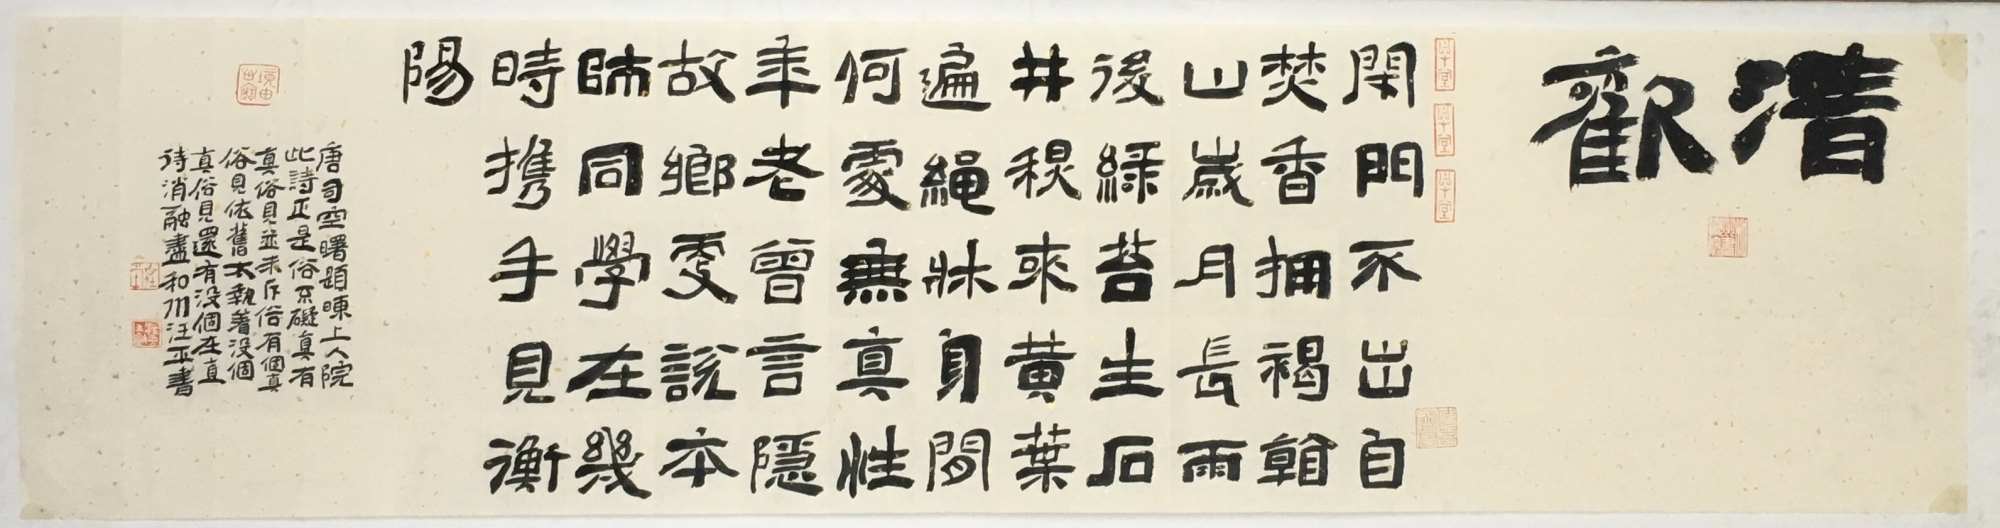 清歡
閉門不出自
焚香擁褐看
山歲月長雨
後綠苔生石
井秋來黃葉
遍繩牀身閒
何處無真性
年老曾言隱
故鄉更說本
師同學在幾
時携手見衡
陽
唐司空曙題暕上人院
此詩正是俗不礙真有
真俗見並未斥俗有個真
俗見依舊太執着沒個
真俗見還有沒個在直
待消融盡和州汪平書